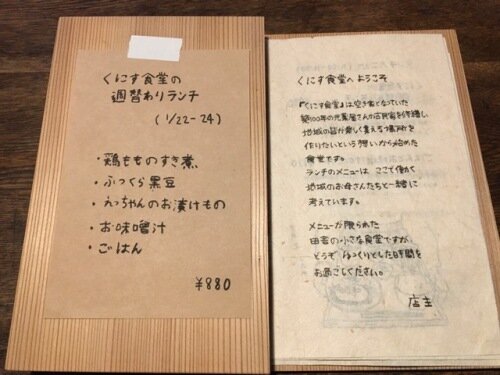 くにす食堂の
週替わりランチ
(1/22-24)
・鶏もものすき煮
・ふっくら黒豆
・えっちゃんのお漬けもの
・お味噌汁
・ごはん
¥880
くにす食堂へようこそ
『くにす食堂』は空き家となっていた
築100年の元薬屋さんの古民家を修繕し
地域の皆が楽しく集える場所を
作りたいという想いから始めた
食堂です。
ランチのメニューは ここで働く
地域のお母さんたちと一緒に
考えています。
メニューが限られた
田舎の小さな食堂ですが、
どうぞ ゆっくりとした時間を
お過ごしください。
店主